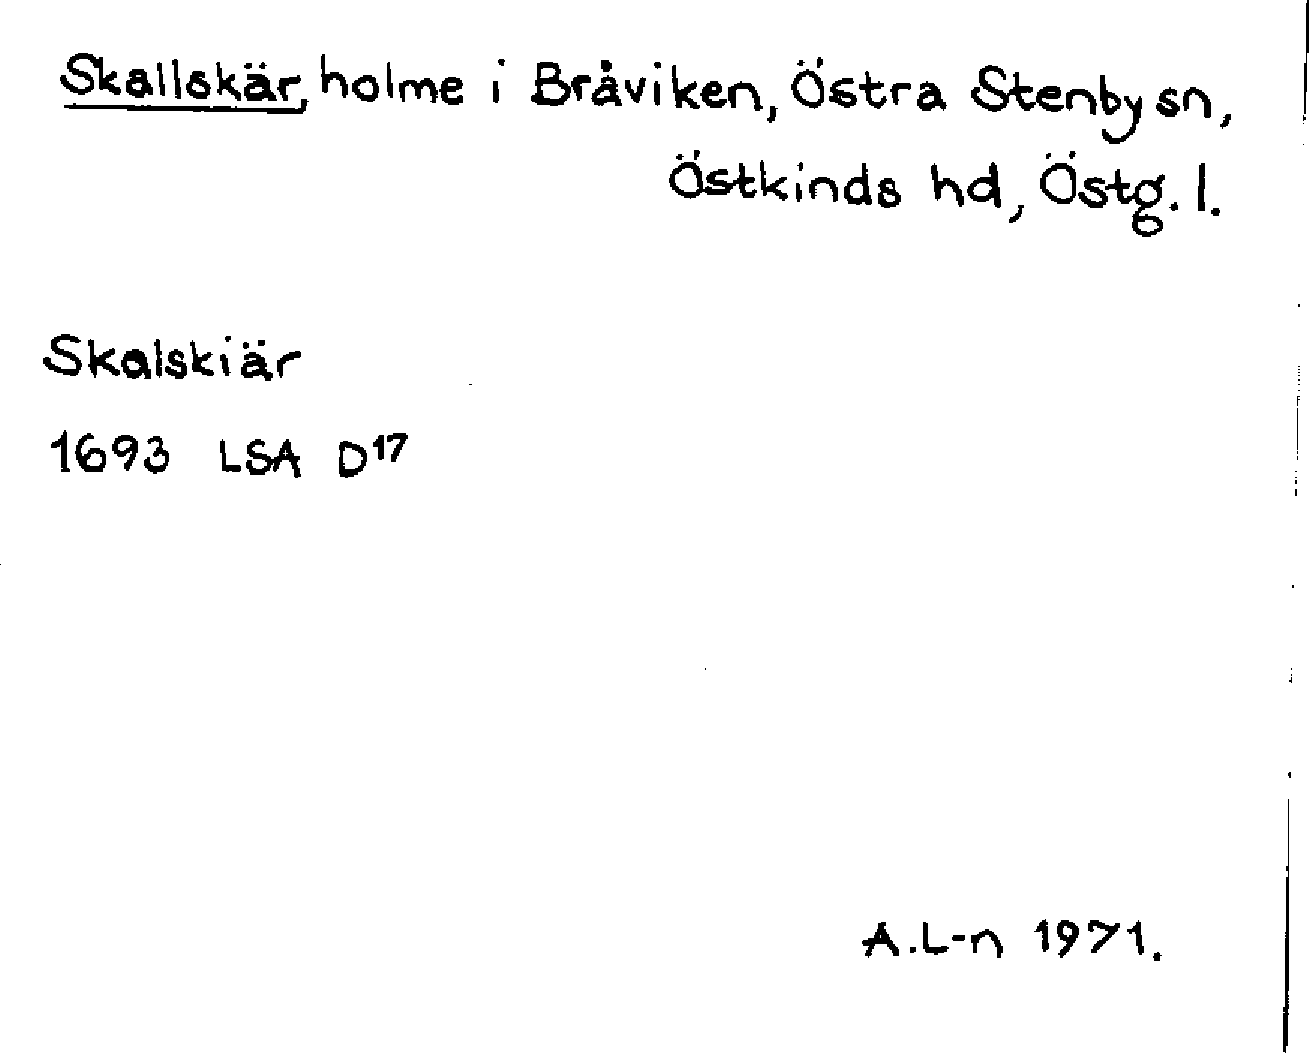 Skallskär, holme i Bråviken, Östra Stenby sn,
Östkinds hd, Östg. l.
Skalskiär
1693 LSA D17
A.L-n 1971.